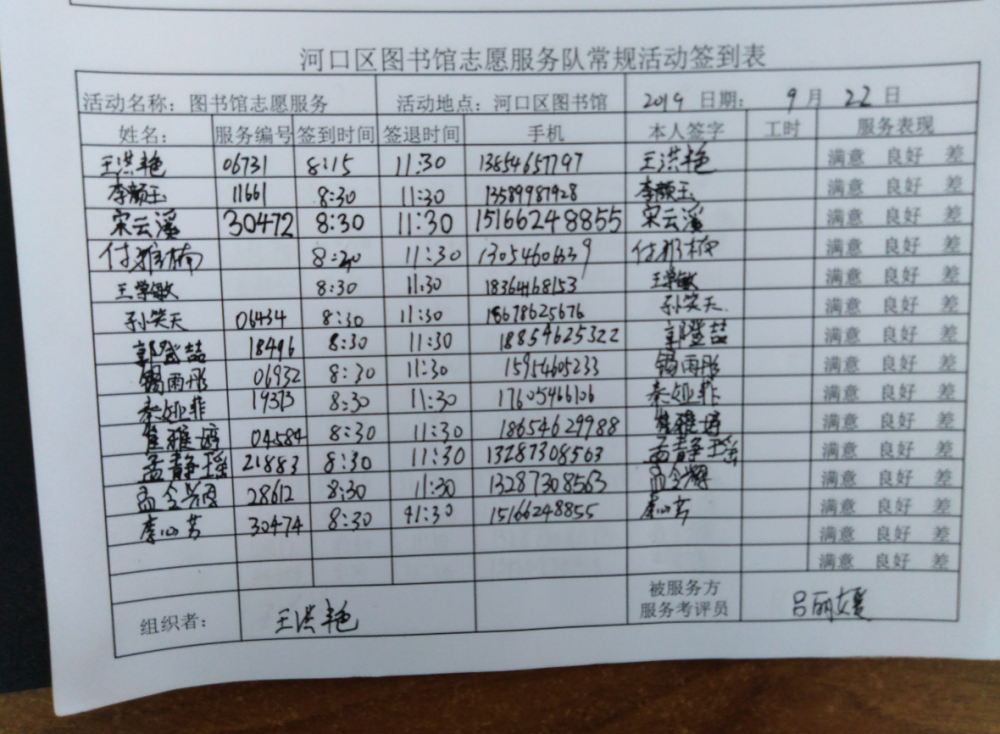 河口区图书馆志愿服务队常规活动签到表
活动名称：图书馆志愿服务 活动地点：河口区图书馆 2019 日期： 9 月 22 日
姓名： 服务编号 签到时间 签退时间 手机 本人签字 工时 服务表现
王洪艳 06731 8:15 11:30 13854657797 王洪艳 满意 良好 差
李颜玉 11661 8:30 11:30 13589987928 李颜玉 满意 良好 差
宋云溪 30472 8:30 11:30 15166248855 宋云溪 满意 良好 差
付雅楠 8:30 11:30 付雅楠 满意 良好 差
王学敏 8:30 11:30 18364168153 王学敏 满意 良好 差
孙笑天 06434 8:30 11:30 18678625676 孙笑天 满意 良好 差
郭登喆 18496 8:30 11:30 18854625322 郭登喆 满意 良好 差
雨彤 06932 8:30 11:30 15954605233 雨彤 满意 良好 差
秦 菲 19373 8:30 11:30 17605466106 秦 菲 满意 良好 差
崔雅婷 04584 8:30 11:30 18654629988 崔雅婷 满意 良好 差
孟静瑶 21883 8:30 11:30 13287308563 孟静瑶 满意 良好 差
孟令 28612 8:30 11:30 13287308563 孟令 满意 良好 差
心芳 30474 8:30 11:30 15166248855 心芳 满意 良好 差
满意 良好 差
组织者： 王洪艳 被服务方
服务考评员 吕丽媛